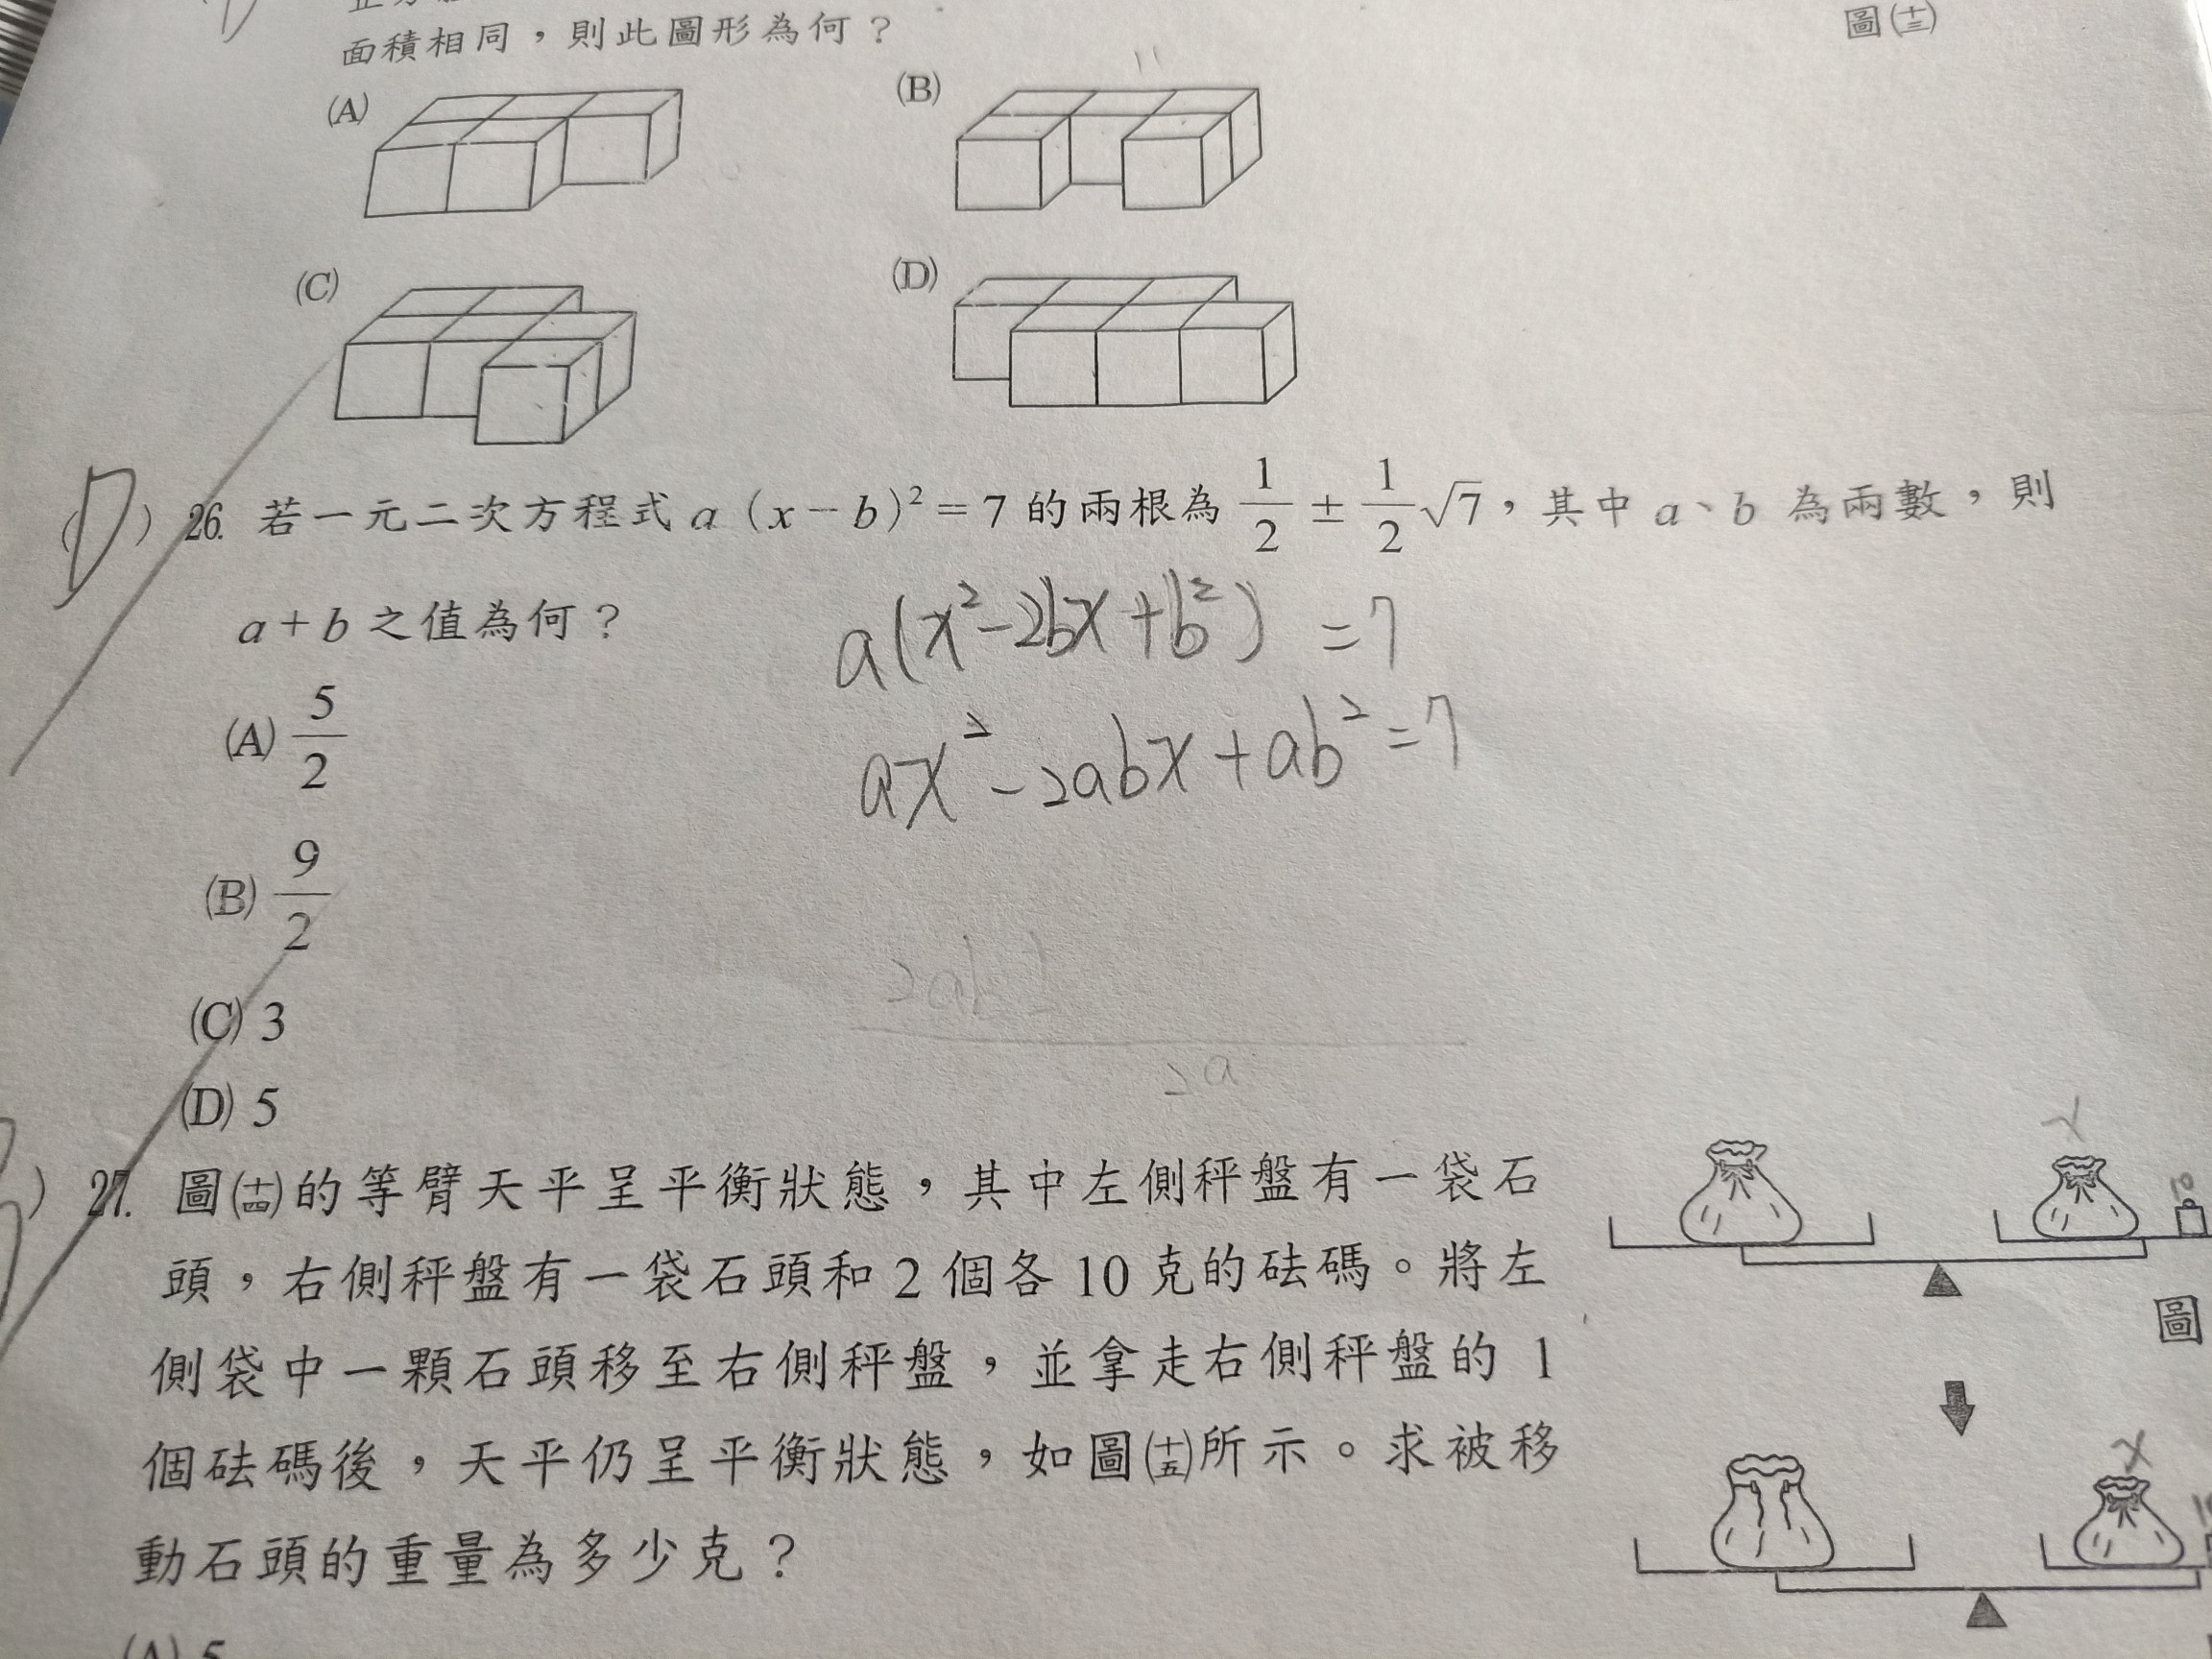 面積相同，則此圖形為何？
圖(十三)
(A)
(B)
(C)
(D)
(D) 26. 若一元二次方程式 a（x－b）²＝7 的兩根為 1/2 ± 1/2 √7，其中 a、b 為兩數，則
a＋b 之值為何？
a(x²-2bx+b²) =7
ax²-2abx+ab²=7
(A) 5/2
(B) 9/2
2a
(C) 3
(D) 5
) 27. 圖(十四)的等臂天平呈平衡狀態，其中左側秤盤有一袋石
頭，右側秤盤有一袋石頭和 2 個各 10 克的砝碼。將左
側袋中一顆石頭移至右側秤盤，並拿走右側秤盤的 1
個砝碼後，天平仍呈平衡狀態，如圖(十五)所示。求被移
動石頭的重量為多少克？
(A) 5
x
圖
x